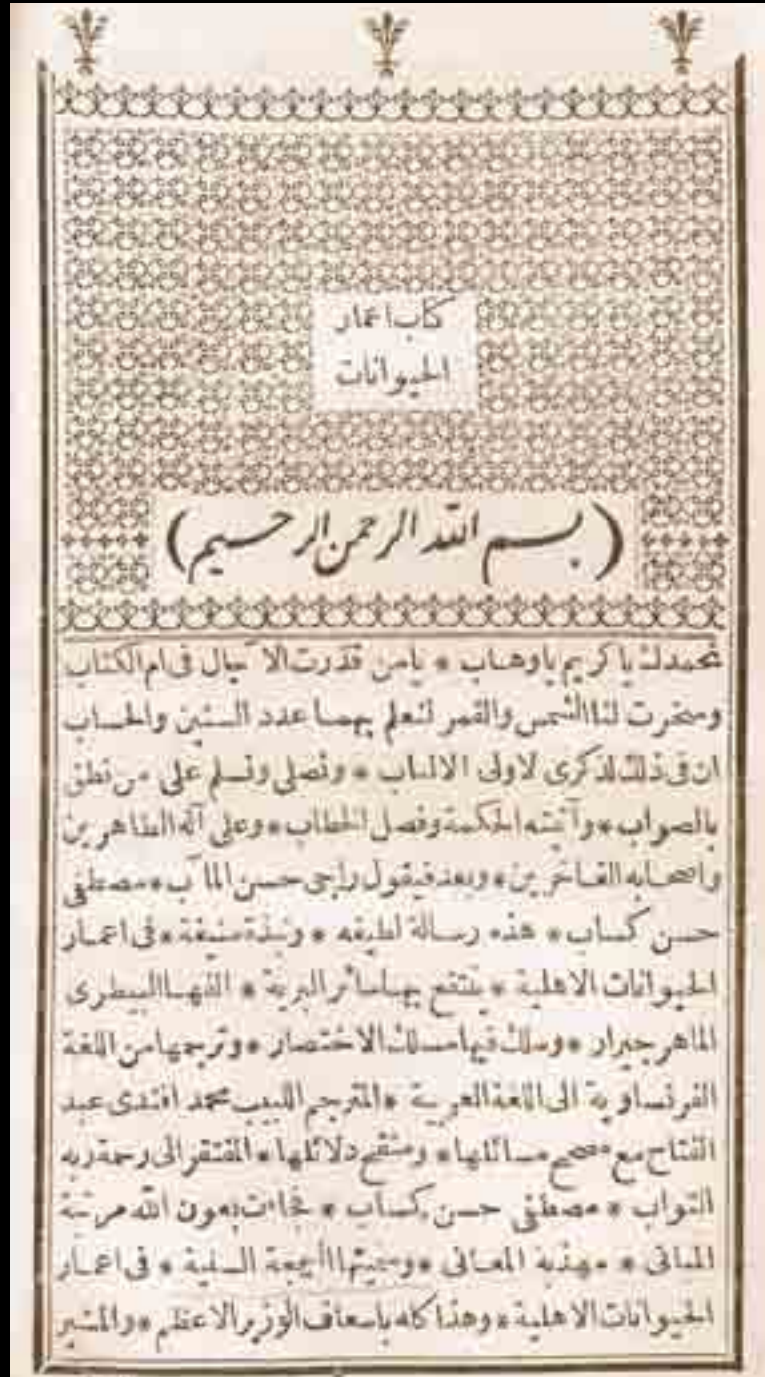 كتاب اعمار
الحيوانات
(بسم الله الرحمن الرحيم)
نحمدك يا كريم يا وهاب * يامن قدرت الآجال فى ام الكتاب
وسخرت لنا الشمس والقمر لنعلم بهما عدد السنين والحساب
ان فى ذلك لذكرى لاولى الالباب * ونصلى ونسلم على من نطق
بالصواب * وآتيته الحكمة وفصل الخطاب * وعلى آله الطاهرين
واصحابه الفاخرين * وبعد فيقول راجى حسن المآب * مصطفى
حسن كساب * هذه رسالة لطيفه * ونبذة منيفة * فى اعمار
الحيوانات الاهلية * ينتفع بها سائر البرية * الفها البيطرى
الماهر جيرار * وسلك فيها مسلك الاختصار * وترجمها من اللغة
الفرنساوية الى اللغة العربية * المترجم اللبيب محمد افندى عبد
الفتاح مع مصحح مسائلها * ومنقح دلائلها * المفتقر الى رحمة ربه
التواب * مصطفى حسن كساب * فجاءت بعون الله مرتبة
المبانى * مهذبة المعانى * وسميتها البهجة السنية * فى اعمار
الحيوانات الاهلية * وهذا كله باسعاف الوزير الاعظم * والمشير